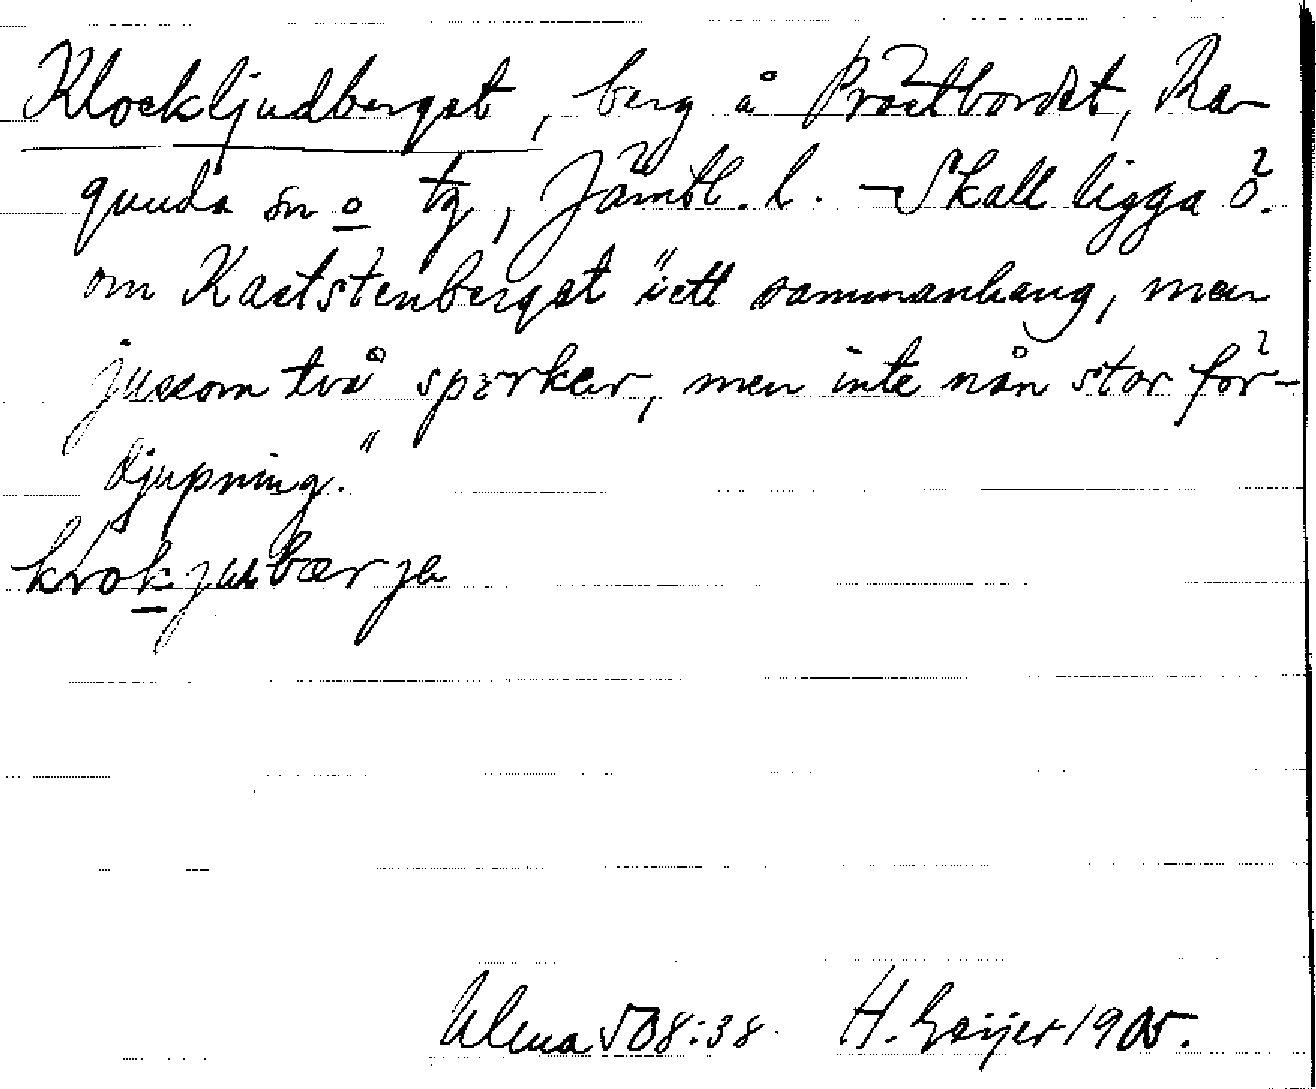 Klockljudberget, berg å Pråstbordet, Ra-
gunda sn o tg, Jämtl. l. – Skall ligga ö.
om Kaststenberget "i ett sammanhang, men
jussom två spərkar, men inte nån stor för-
djupning."
krokjusbærja
Ulma 508:38. H. Geijer 1905.